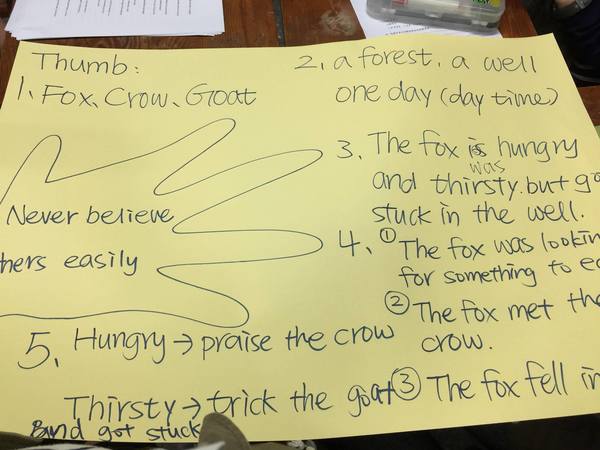 Thumb:
1. Fox、Crow、Goat
2. a forest, a well
one day (day time)
3. The fox is hungry
was
and thirsty. but go
stuck in the well.
Never believe
thers easily
4. ① The fox was lookin
for something to ea
② The fox met the
crow.
③ The fox fell in
5. Hungry → praise the crow
Thirsty → trick the goat
and got stuck